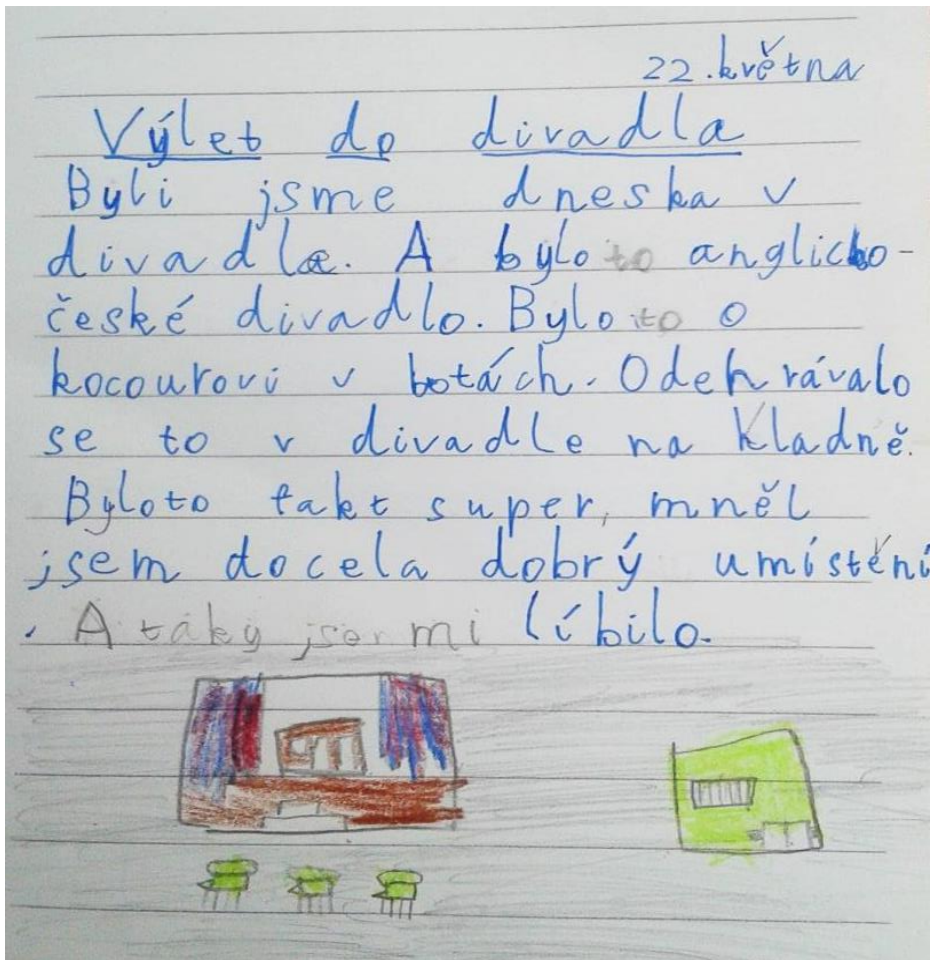 22. května
Výlet do divadla
Byli jsme dneska v
divadle. A bylo to anglicko-
české divadlo. Bylo to o
kocourovi v botách. Odehrávalo
se to v divadle na Kladně.
Byloto fakt super, mněl
jsem docela dobrý umístění
. A taky mi líbilo.